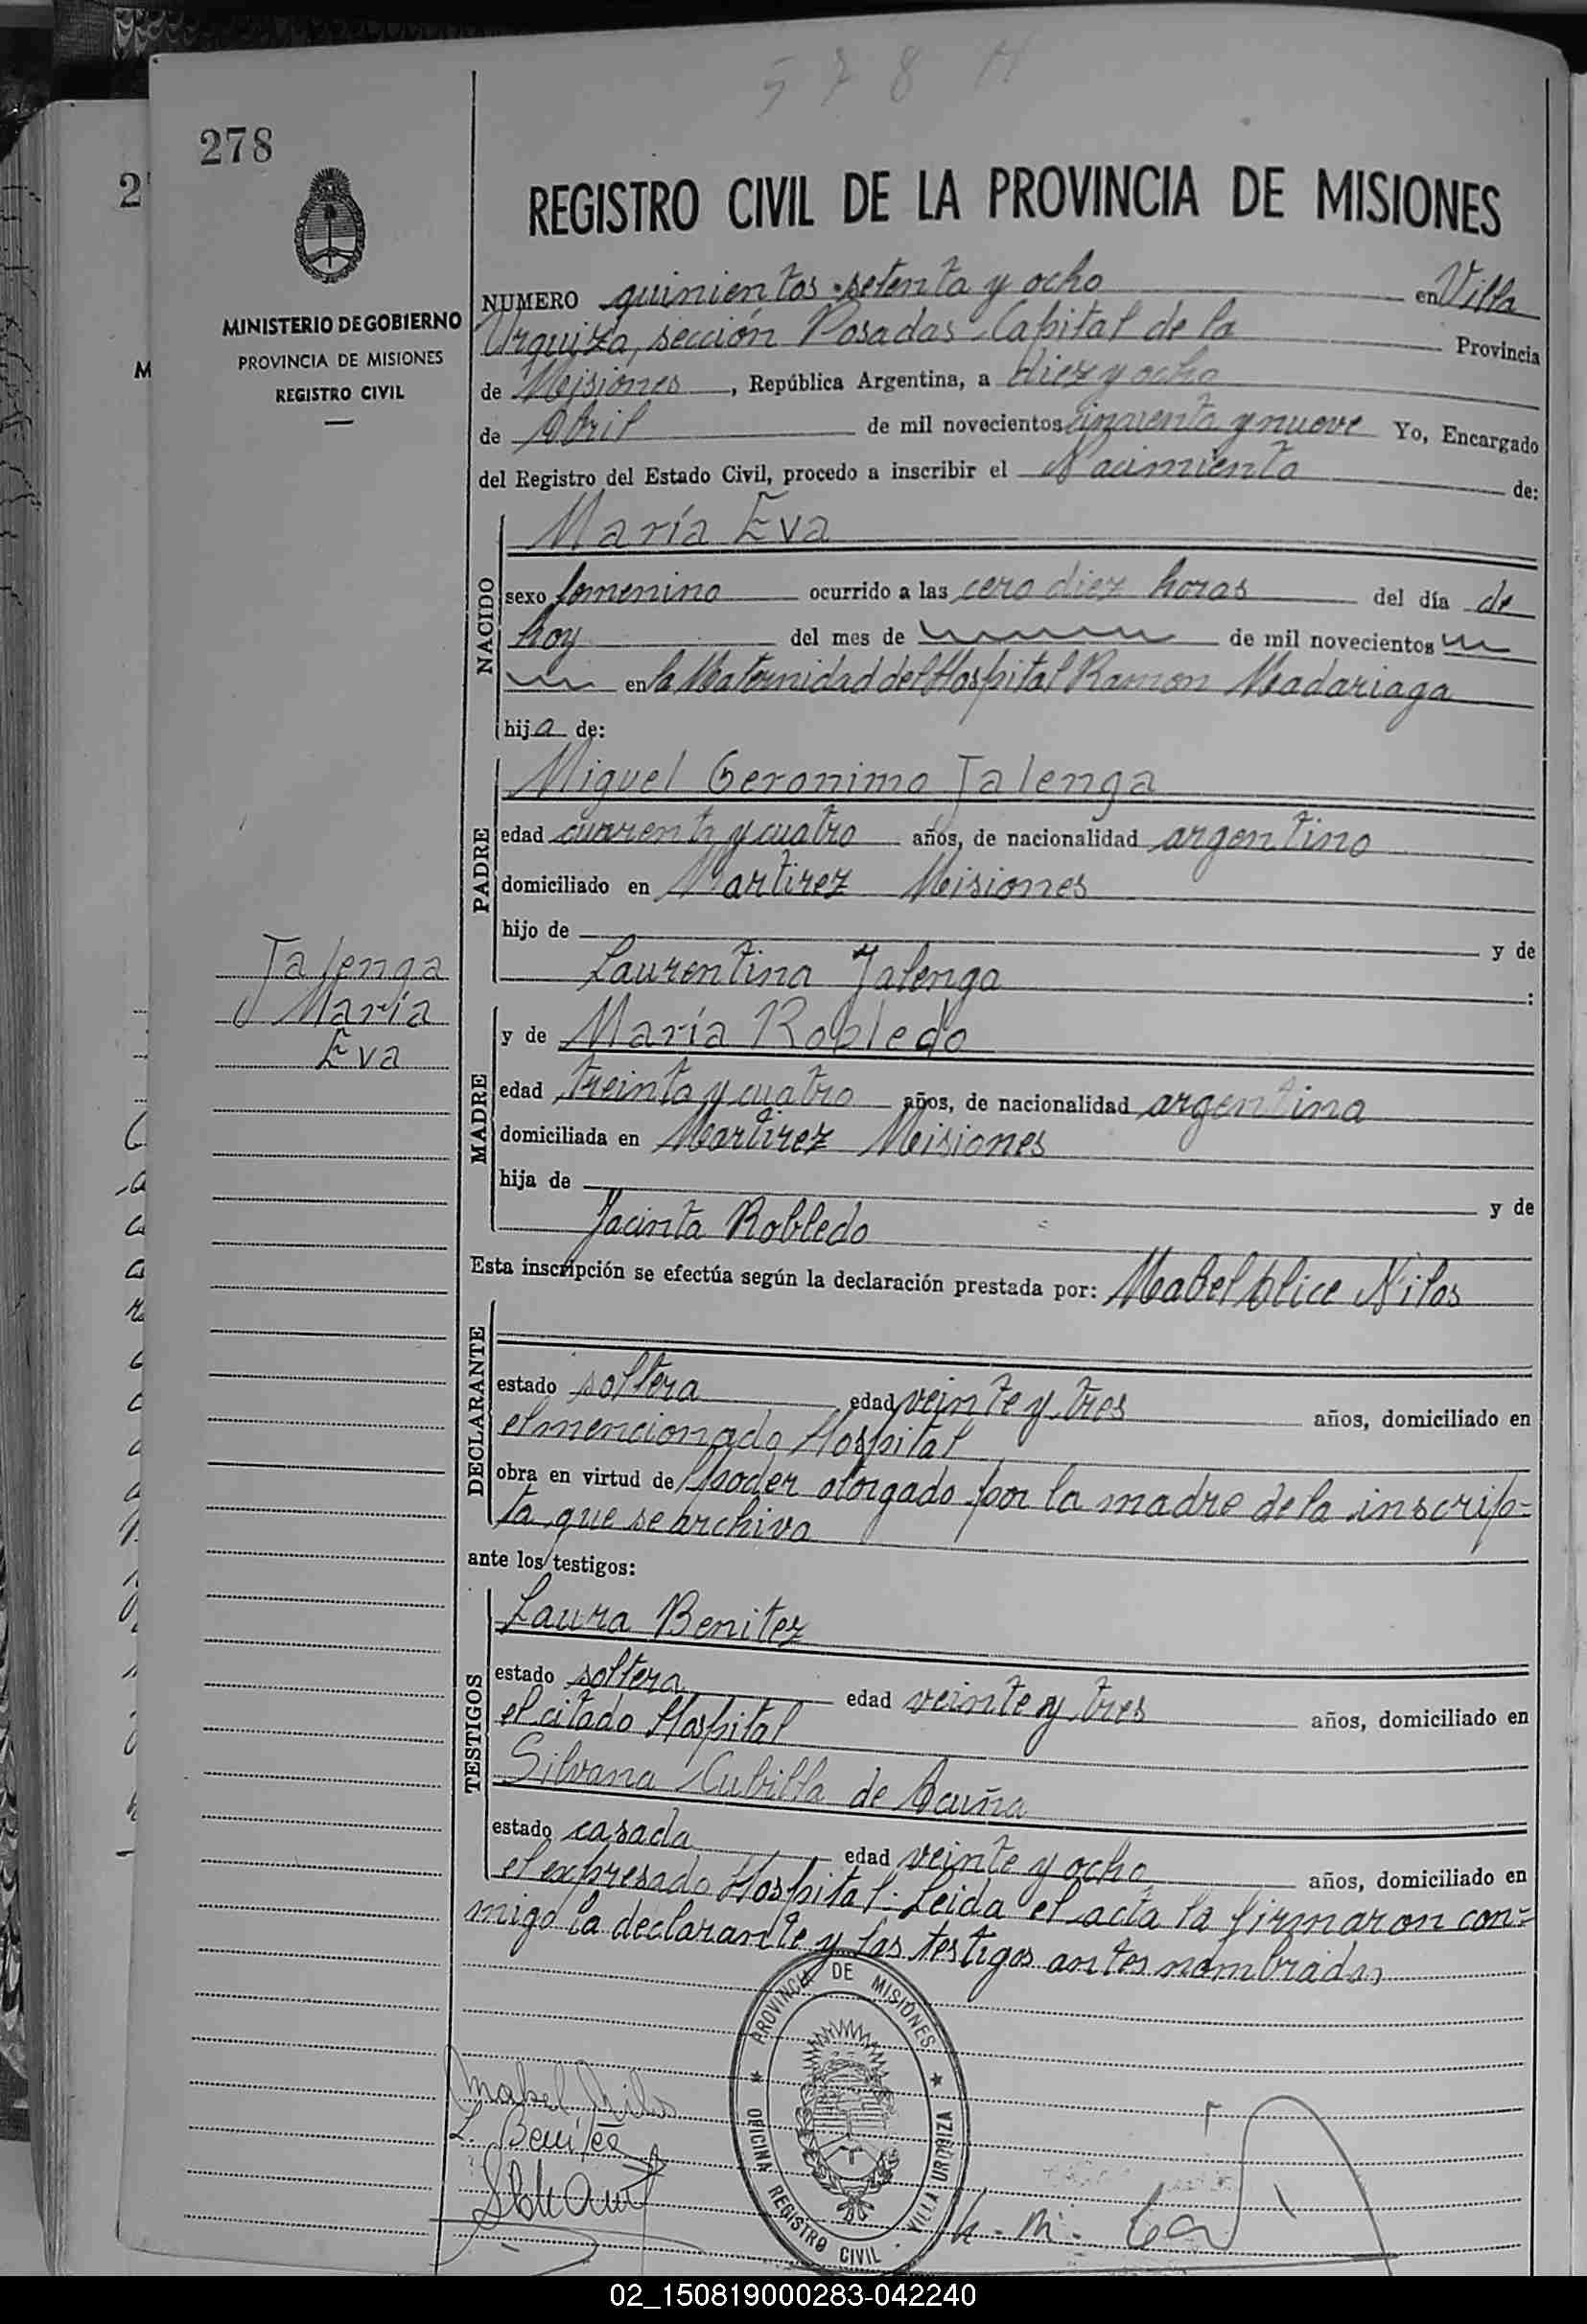 578 H
278
REGISTRO CIVIL DE LA PROVINCIA DE MISIONES
MINISTERIO DE GOBIERNO
PROVINCIA DE MISIONES
REGISTRO CIVIL
NUMERO quinientos setenta y ocho en Villa
Urquiza, sección Posadas Capital de la Provincia
de Misiones, República Argentina, a diez y ocho
de Abril de mil novecientos cincuenta y nueve Yo, Encargado
del Registro del Estado Civil, procedo a inscribir el Nacimiento de:
NACIDO
María Eva
sexo femenino ocurrido a las cero diez horas del día de
hoy del mes de de mil novecientos
en la Maternidad del Hospital Ramon Madariaga
hija de:
PADRE
Miguel Geronimo Jalenga
edad cuarenta y cuatro años, de nacionalidad argentino
domiciliado en Martirez Misiones
hijo de y de
Laurentina Jalenga :
Jalenga
María
Eva
MADRE
y de María Robledo
edad treinta y cuatro años, de nacionalidad argentina
domiciliada en Martirez Misiones
hija de y de
Jacinta Robledo
Esta inscripción se efectúa según la declaración prestada por: Mabel Alice Nilos
DECLARANTE
estado soltera edad veinte y tres años, domiciliado en
el mencionado Hospital
obra en virtud de poder otorgado por la madre de la inscrip=
ta que se archiva
ante los testigos:
TESTIGOS
Laura Benitez
estado soltera edad veinte y tres años, domiciliado en
el citado Hospital
Silvana Cubilla de Acuña
estado casada edad veinte y ocho años, domiciliado en
el expresado Hospital. Leida el acta la firmaron con=
migo la declarante y los testigos antes nombrados
PROVINCIA DE MISIONES
OFICINA REGISTRO CIVIL - VILLA URQUIZA
Mabel Nilos
L. Benítez
02_150819000283-042240